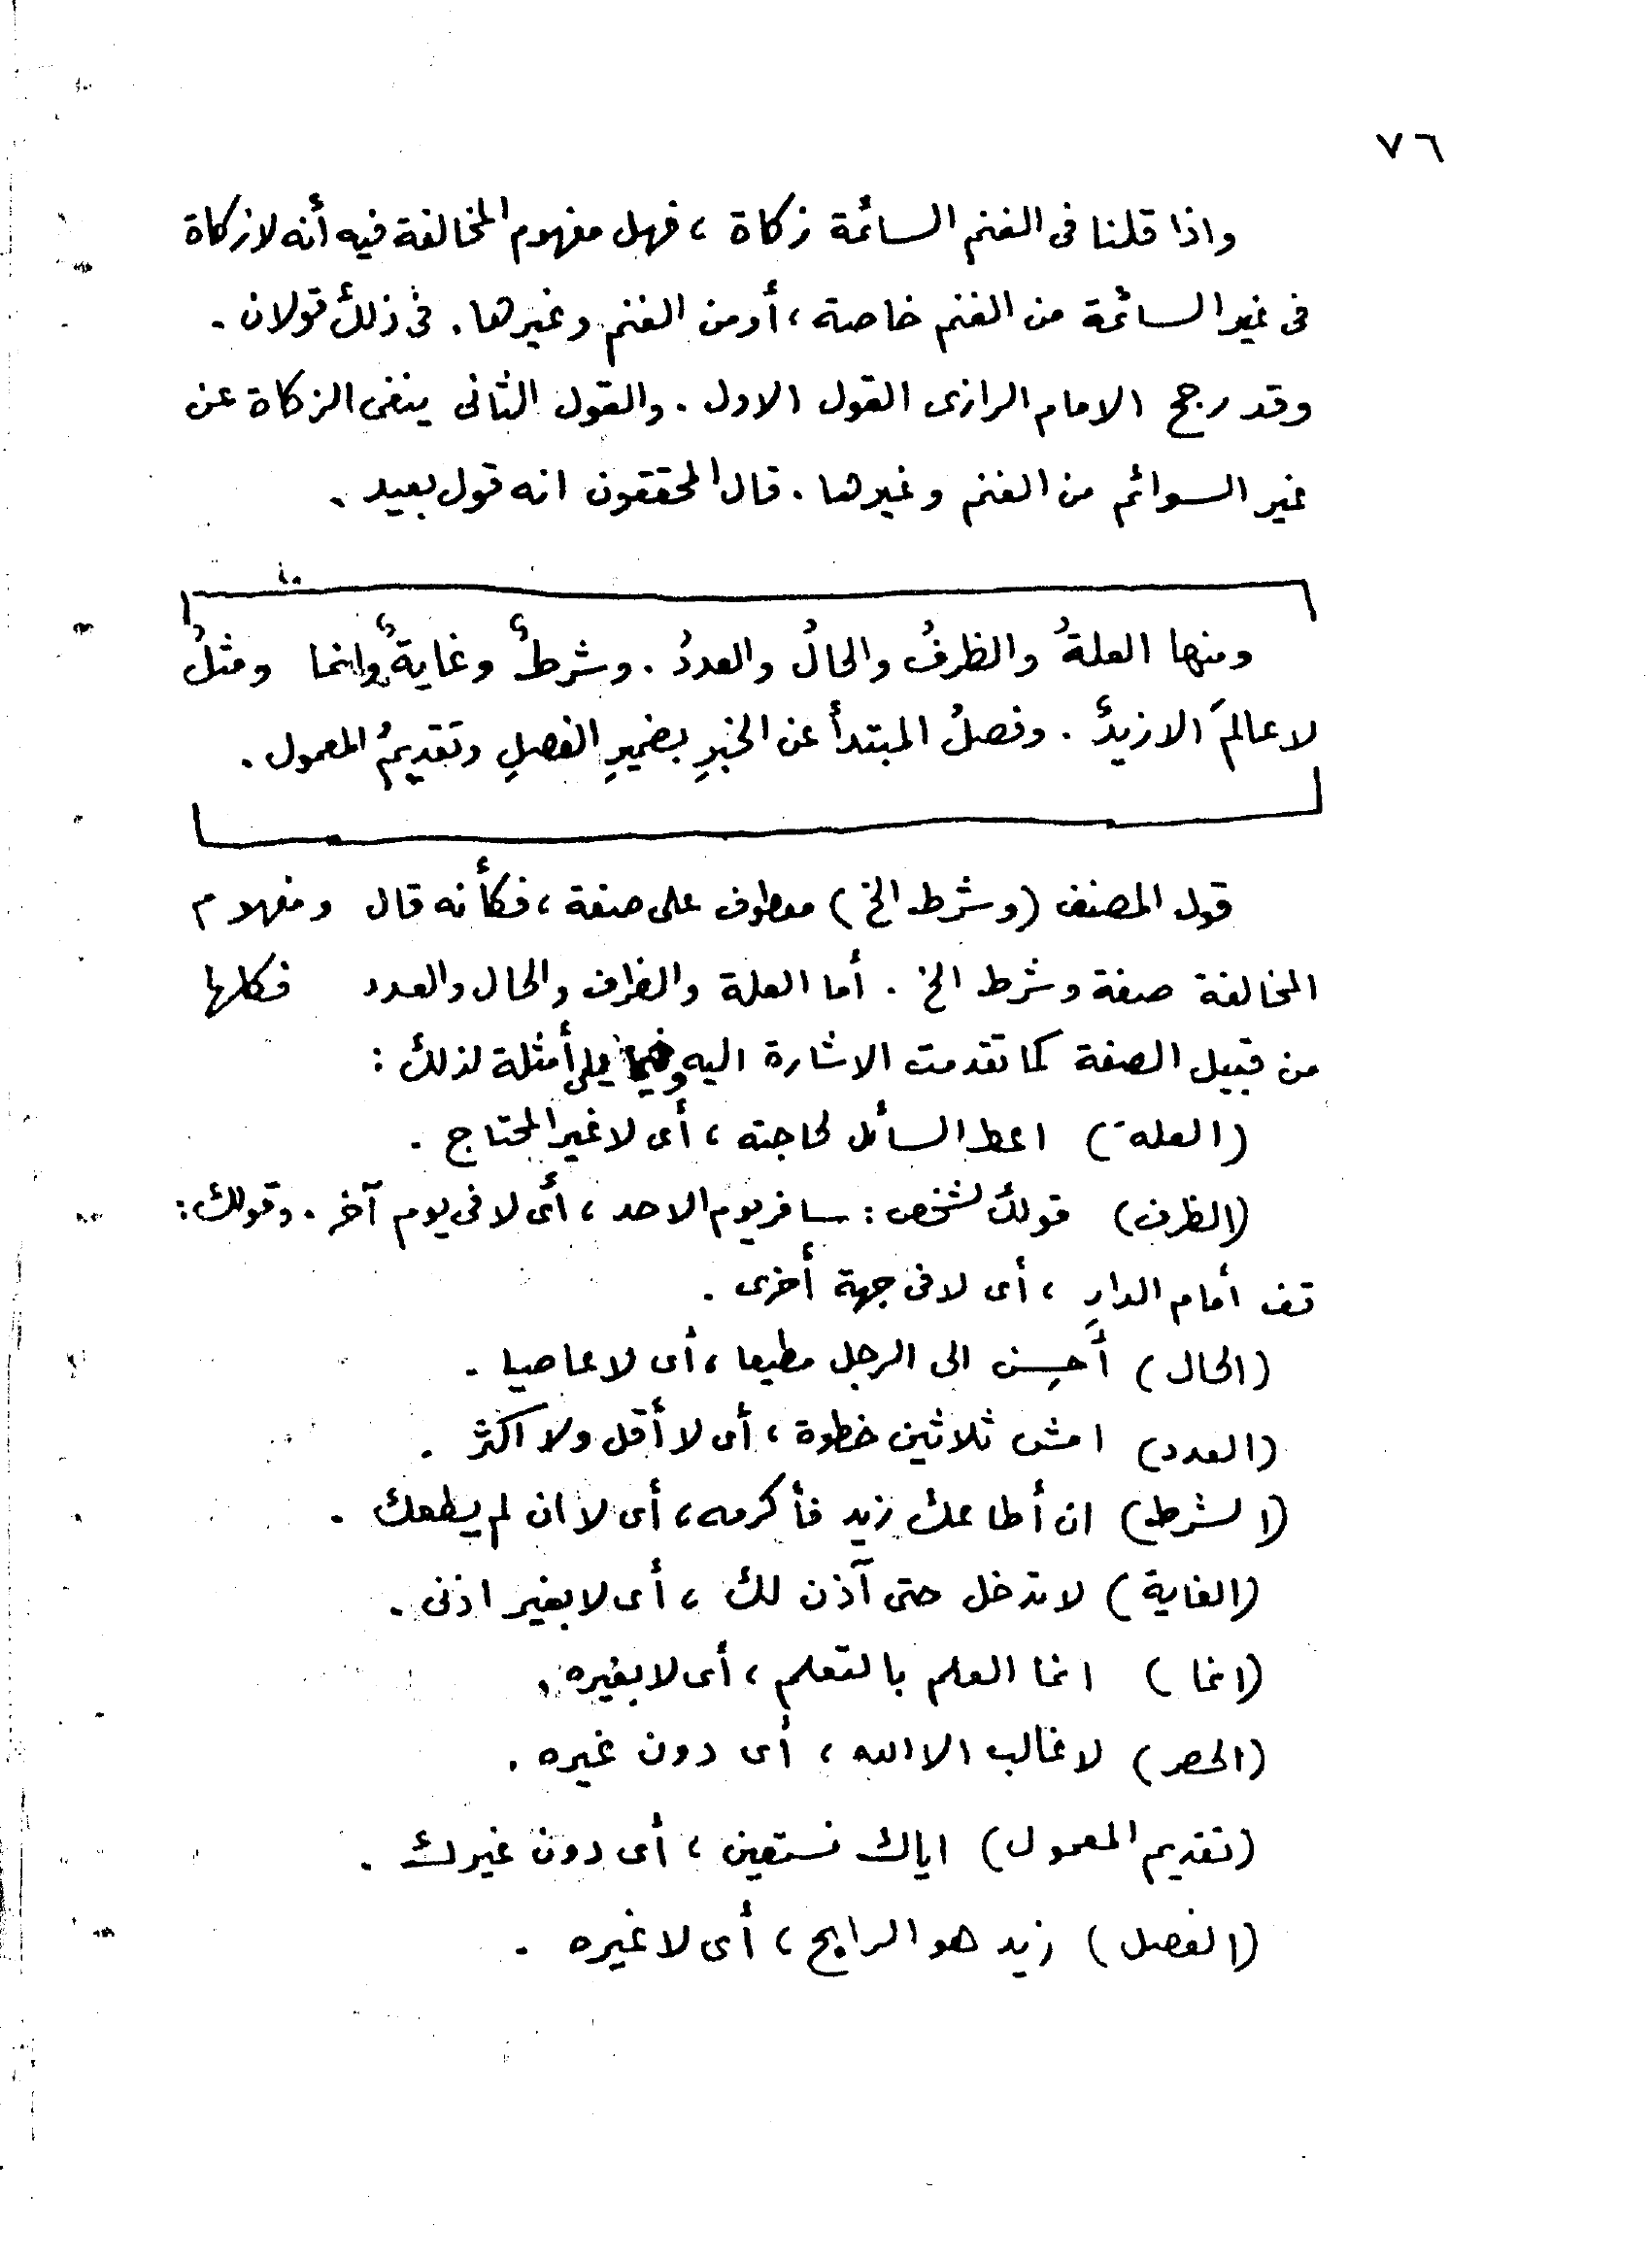 ٧٦
واذا قلنا فى الغنم السائمة زكاة ، فهل مفهوم المخالفة فيه أنه لا زكاة
فى غير السائمة من الغنم خاصة ، أو من الغنم وغيرها . فى ذلك قولان .
وقد رجح الامام الرازى القول الاول . والقول الثانى ينفى الزكاة عن
غير السوائم من الغنم وغيرها . قال المحققون انه قول بعيد .
ومنها العلةُ والظرفُ والحالُ والعددُ . وشرطٌ وغايةٌ وانما ومثلُ
لا عالمَ الا زيدٌ . وفصلُ المبتدأ عن الخبرِ بضميرِ الفصلِ وتقديمُ المعمول .
قول المصنف (وشرط الخ) معطوف على صفة ، فكأنه قال ومفهوم
المخالفة صفة وشرط الخ . أما العلة والظرف والحال والعدد فكلها
من قبيل الصفة كما تقدمت الاشارة اليه وفيما يلى أمثلة لذلك :
(العلة) اعط السائل لحاجته ، أى لا غير المحتاج .
(الظرف) قولك لشخص : سافر يوم الاحد ، أى لا فى يوم آخر . وقولك :
قف أمام الدارِ ، أى لا فى جهة أخرى .
(الحال) أحسِن الى الرجل مطيعا ، أى لا عاصيا .
(العدد) امش ثلاثين خطوة ، أى لا أقل ولا اكثر .
(الشرط) ان أطاعك زيد فأكرمه ، أى لا ان لم يطعك .
(الغاية) لا تدخل حتى آذن لك ، أى لا بغير اذنى .
(انما) انما العلم بالتعلم ، أى لا بغيره .
(الحصر) لا غالب الا الله ، أى دون غيره .
(تقديم المعمول) اياك نستعين ، أى دون غيرك .
(الفصل) زيد هو الرابح ، أى لا غيره .